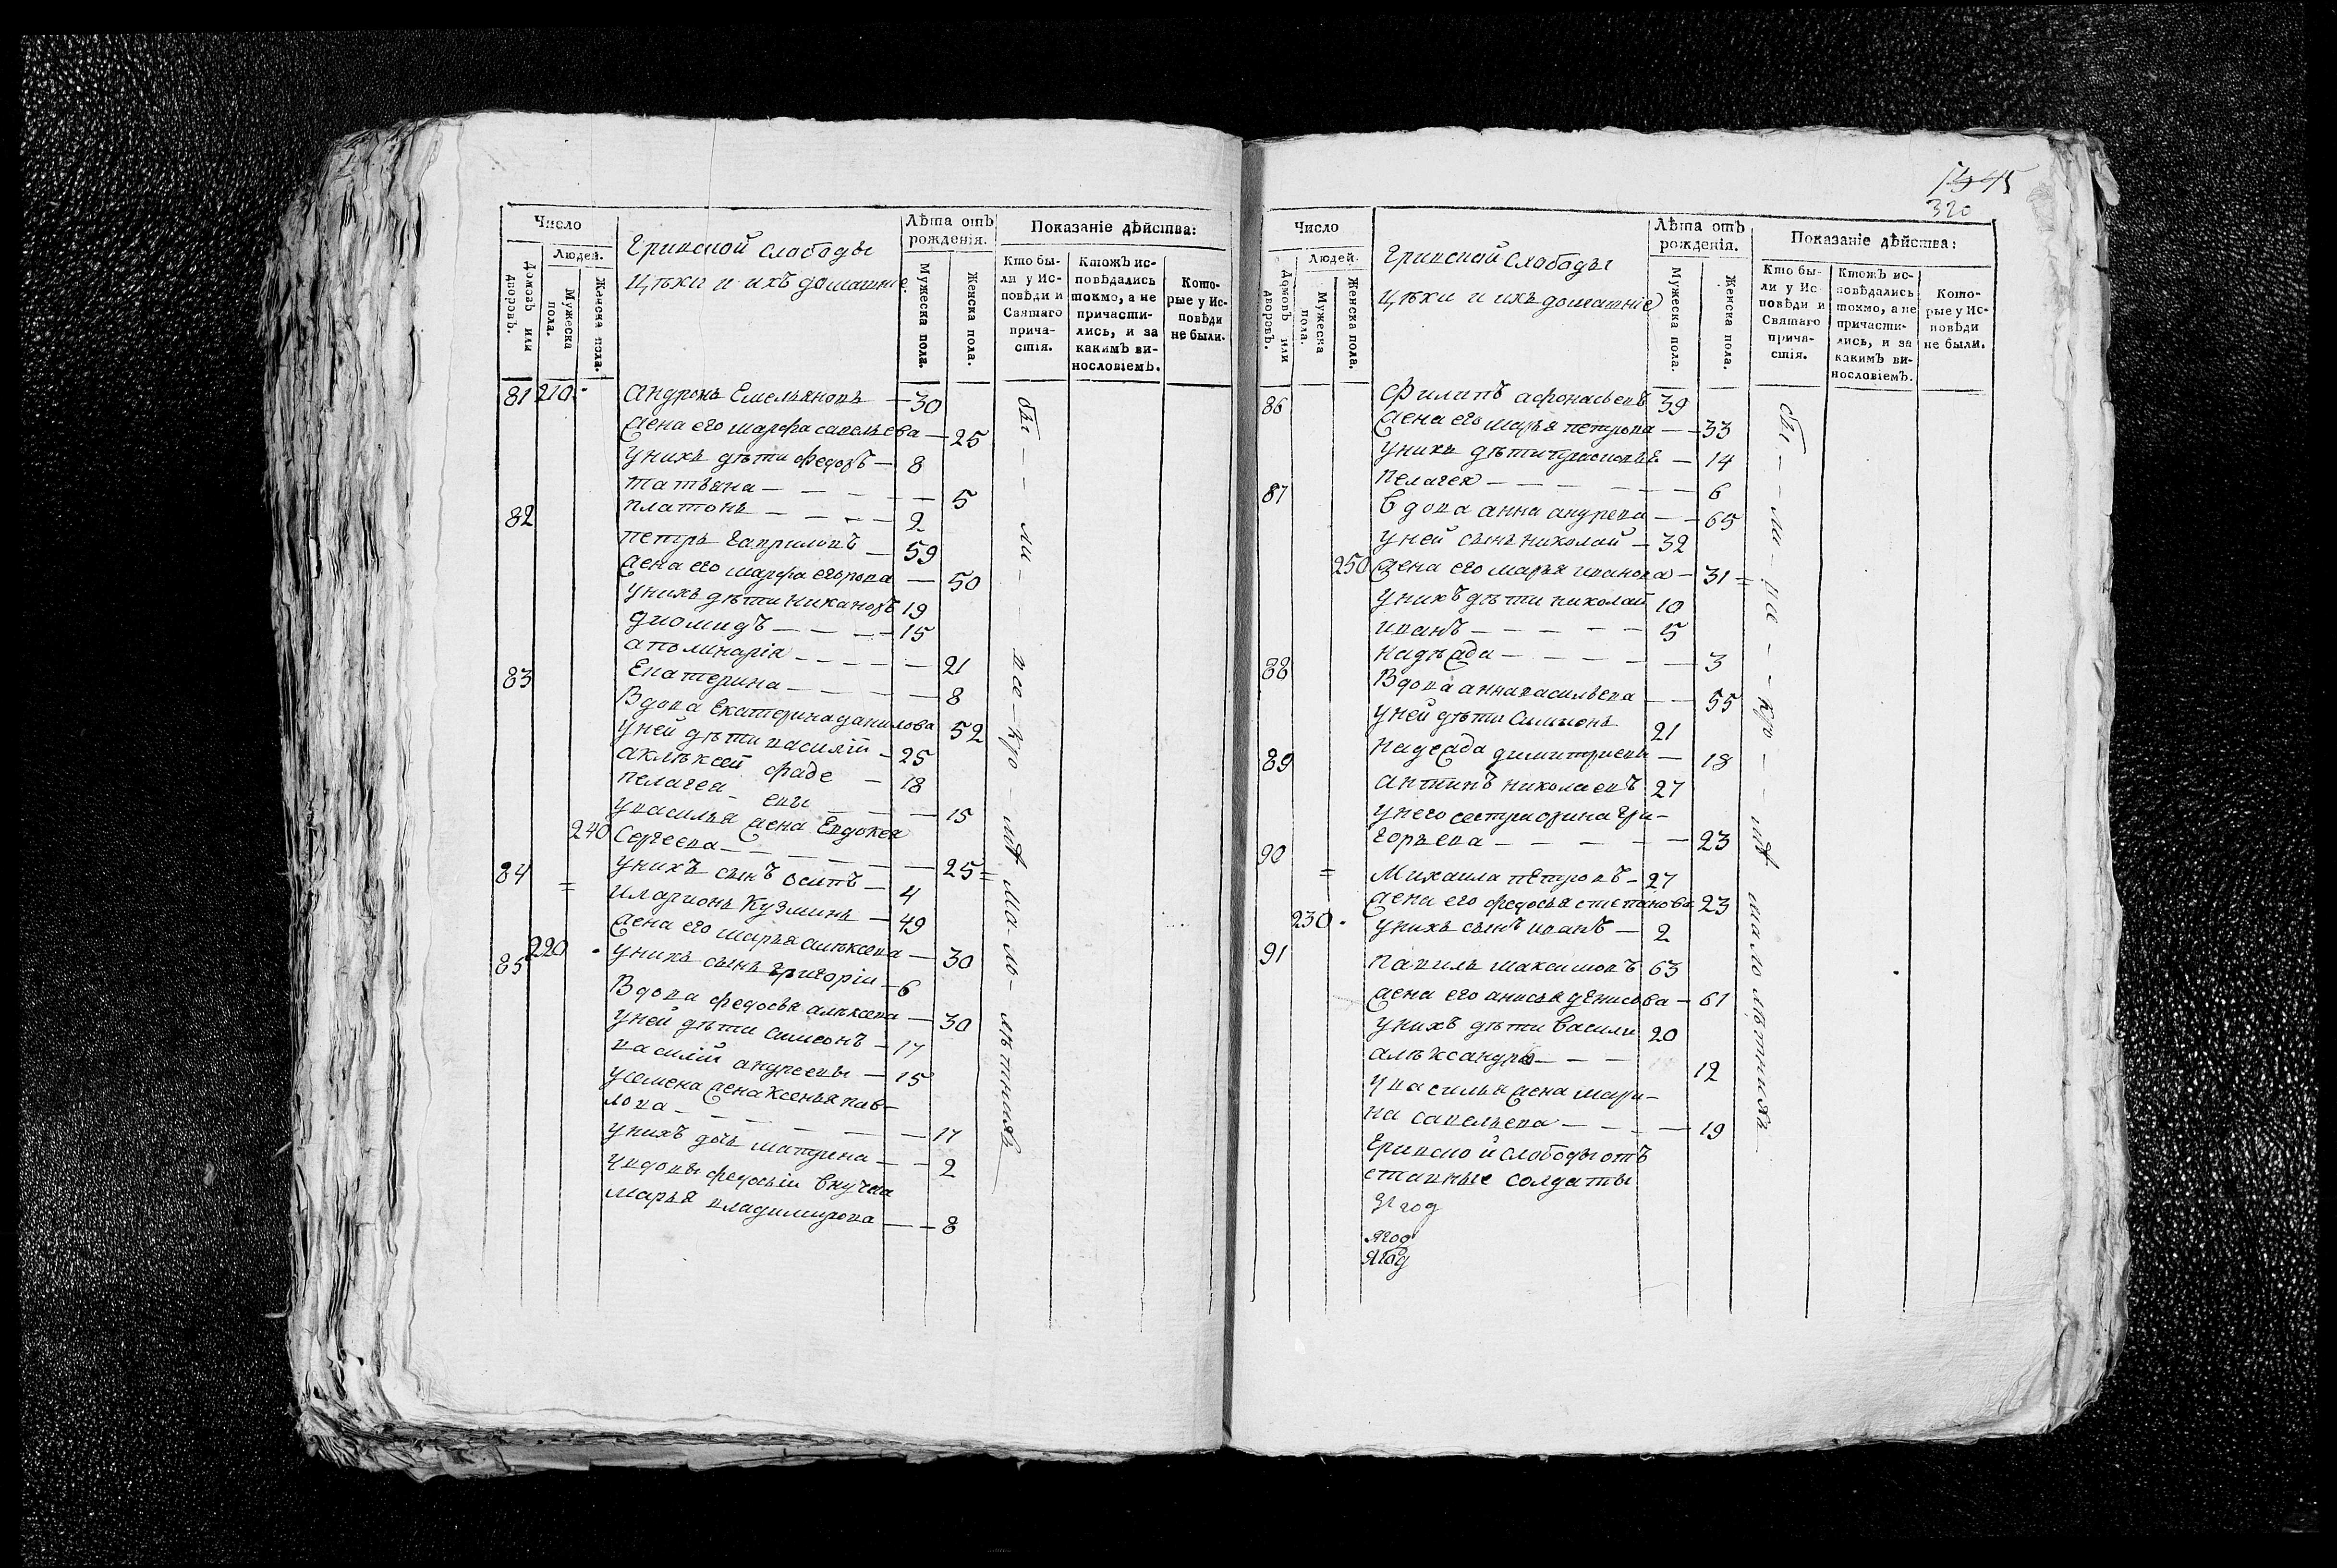 Число
Людей.
Домовъ или дворовъ.
Мужеска пола.
Женска пола.
Ериской слободы
цѣхи и ихъ домашніе
Лѣта отъ рожденія.
Мужеска пола.
Женска пола.
Показаніе дѣйства:
Кто бы-
ли у Ис-
повѣди и
Святаго
прича-
стія.
Ктожъ ис-
повѣдались
токмо, а не
причасти-
лись, и за
какимъ ви-
нословіемъ.
Кото-
рые у Ис-
повѣди
не были.
81 210 Андронъ Емельяновъ — 30
жена его марфа савельева — 25
у нихъ дѣти федоръ — 8
татьяна — 5
платонъ — 2
82 петръ гавриловъ — 59
жена его марфа егорова — 50
у нихъ дѣти никаноръ 19
диомидъ — 15
аполинарія — 21
Екатерина — 8
83 Вдова Екатерина данилова 52
у ней дѣти василій — 25
алѣксей фаде — 18
пелагея евы — 15
у василья жена Евдокея
240 Сергеева — 25
у нихъ сынъ осипъ — 4
84 иларионъ Кузминъ — 49
жена его марья алѣксева — 30
220 у нихъ сынъ григоріи — 6
85 Вдова федосья алѣксева — 30
у ней дѣти симеонъ — 17
василій андреевы — 15
у семена жена Ксенья пав-
лова — 17
у нихъ дочь матрена — 2
у вдовы федосьи внучка
марья владимирова — 8
бы — ли — все — кро — мѣ мало — лѣтнихъ
1345
320
Число
Людей.
Домовъ или дворовъ.
Мужеска пола.
Женска пола.
Ериской слободы
цѣхи и ихъ домашніе
Лѣта отъ рожденія.
Мужеска пола.
Женска пола.
Показаніе дѣйства:
Кто бы-
ли у Ис-
повѣди и
Святаго
прича-
стія.
Ктожъ ис-
повѣдались
токмо, а не
причасти-
лись, и за
какимъ ви-
нословіемъ.
Кото-
рые у Ис-
повѣди
не были.
86 Филипъ афонасьевъ 39
жена его марья петрова — 33
у нихъ дѣти прасковья — 14
пелагея — 6
87 Вдова анна андрева — 65
у ней сынъ николай — 32
250 жена его марья иванова — 31
у нихъ дѣти николай 10
иванъ — 5
надѣжда — 3
88 Вдова анна васильева — 55
у ней дѣти Симионъ 21
надежда димитриевы — 18
89 антипъ николаевъ 27
у него сестра орина гри-
горьева — 23
90 Михаила петровъ — 27
жена его федосья степанова 23
230 у нихъ сынъ иванъ — 2
91 павилъ максимовъ 63
жена его анисья денисова — 61
у нихъ дѣти василий 20
алѣксандра — 12
у василья жена мари-
на савельева — 19
Ериской слободы отъ
ставные солдаты
ягод
ягод
бы — ли — все — кро — мѣ малолѣтнихъ